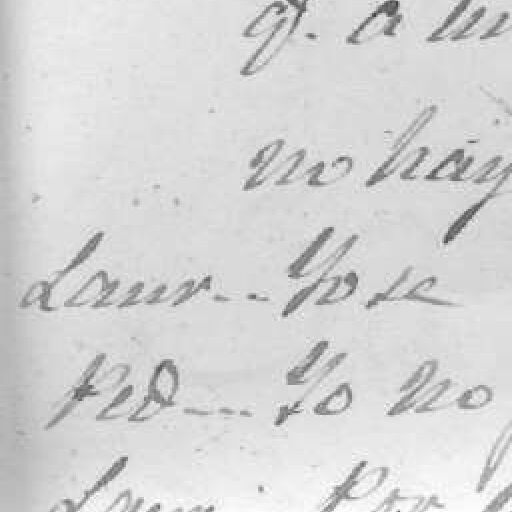 q.e a
no hay
Laur... Yo se
Ped... Yo no
Laur.. Por